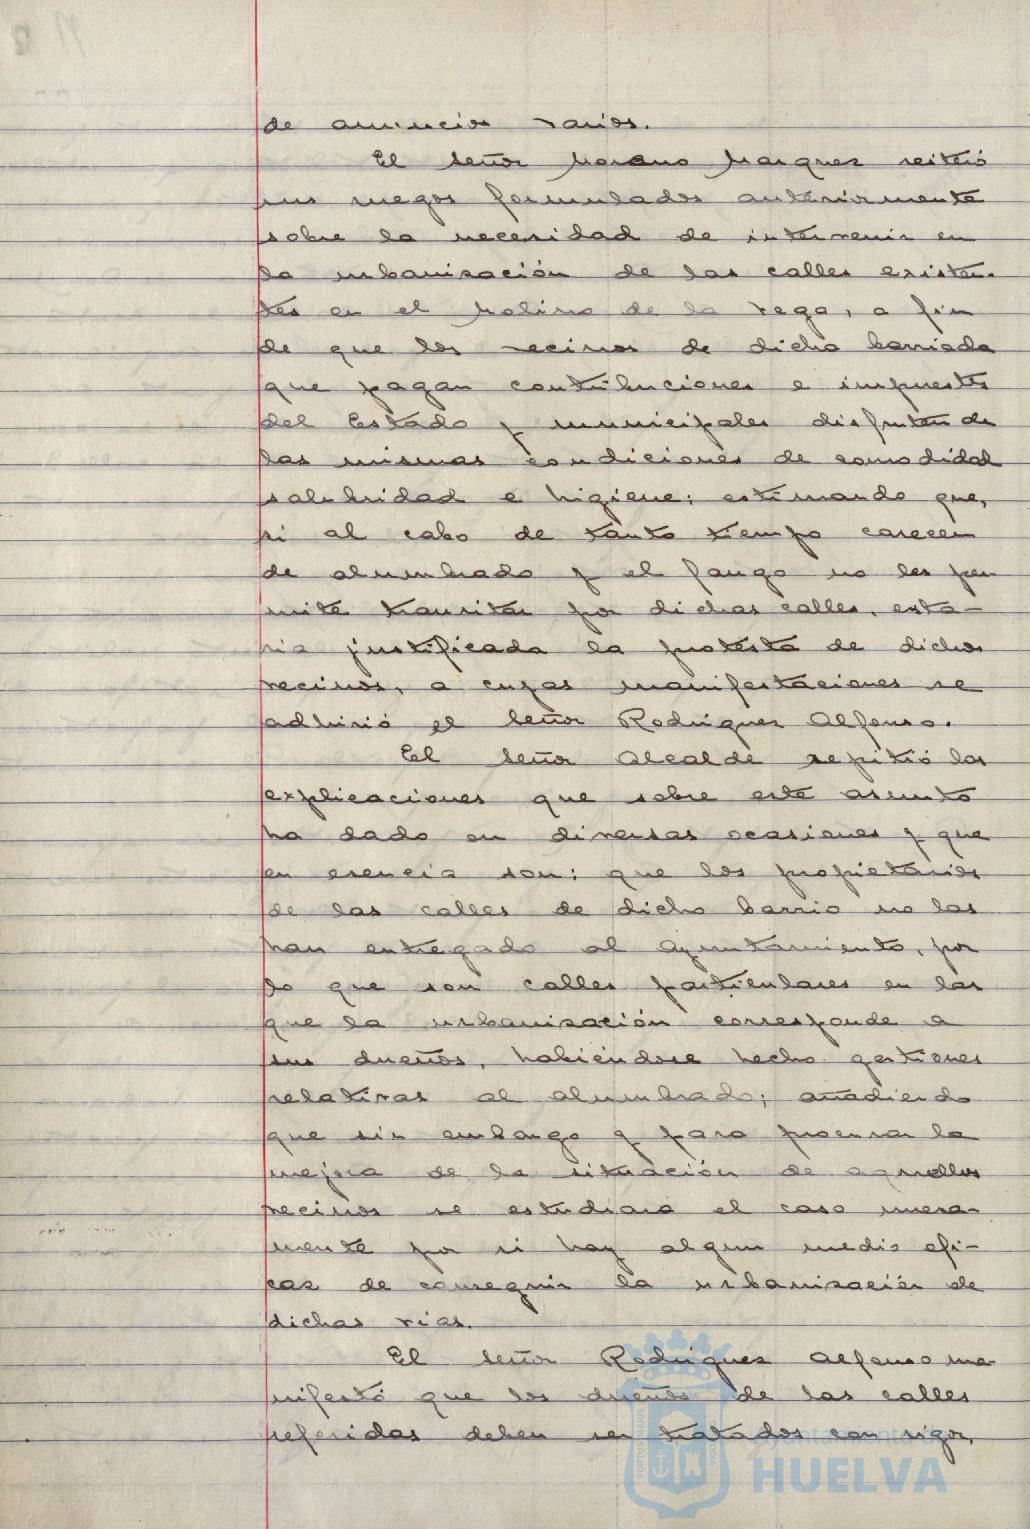 de anuncios varios.
El Señor Moreno Marquez reiteró
sus ruegos formulados anteriormente
sobre la necesidad de intervenir en
la urbanización de las calles existen-
tes en el Molino de la Vega, a fin
de que los vecinos de dicha barriada
que pagan contribuciones e impuestos
del Estado y municipales disfruten de
las mismas condiciones de comodidad
salubridad e higiene; estimando que,
si al cabo de tanto tiempo carecen
de alumbrado y el fango no les per
mite transitar por dichas calles, esta-
ria justificada la protesta de dichos
vecinos, a cuyas manifestaciones se
adhirió el Señor Rodriguez Alfonso.
El Señor Alcalde repitió las
explicaciones que sobre este asunto
ha dado en diversas ocasiones y que
en esencia son: que los propietarios
de las calles de dicho barrio no las
han entregado al Ayuntamiento, por
lo que son calles particulares en las
que la urbanización corresponde a
sus dueños, habiéndose hecho gestiones
relativas al alumbrado; añadiendo
que sin embargo y para procurar la
mejora de la situación de aquellos
vecinos se estudiará el caso nueva-
mente por si hay algun medio efi-
caz de conseguir la urbanización de
dichas vias.
El Señor Rodriguez Alfonso ma-
nifestó que los dueños de las calles
referidas deben ser tratados con rigor,
Ayuntamiento de
HUELVA